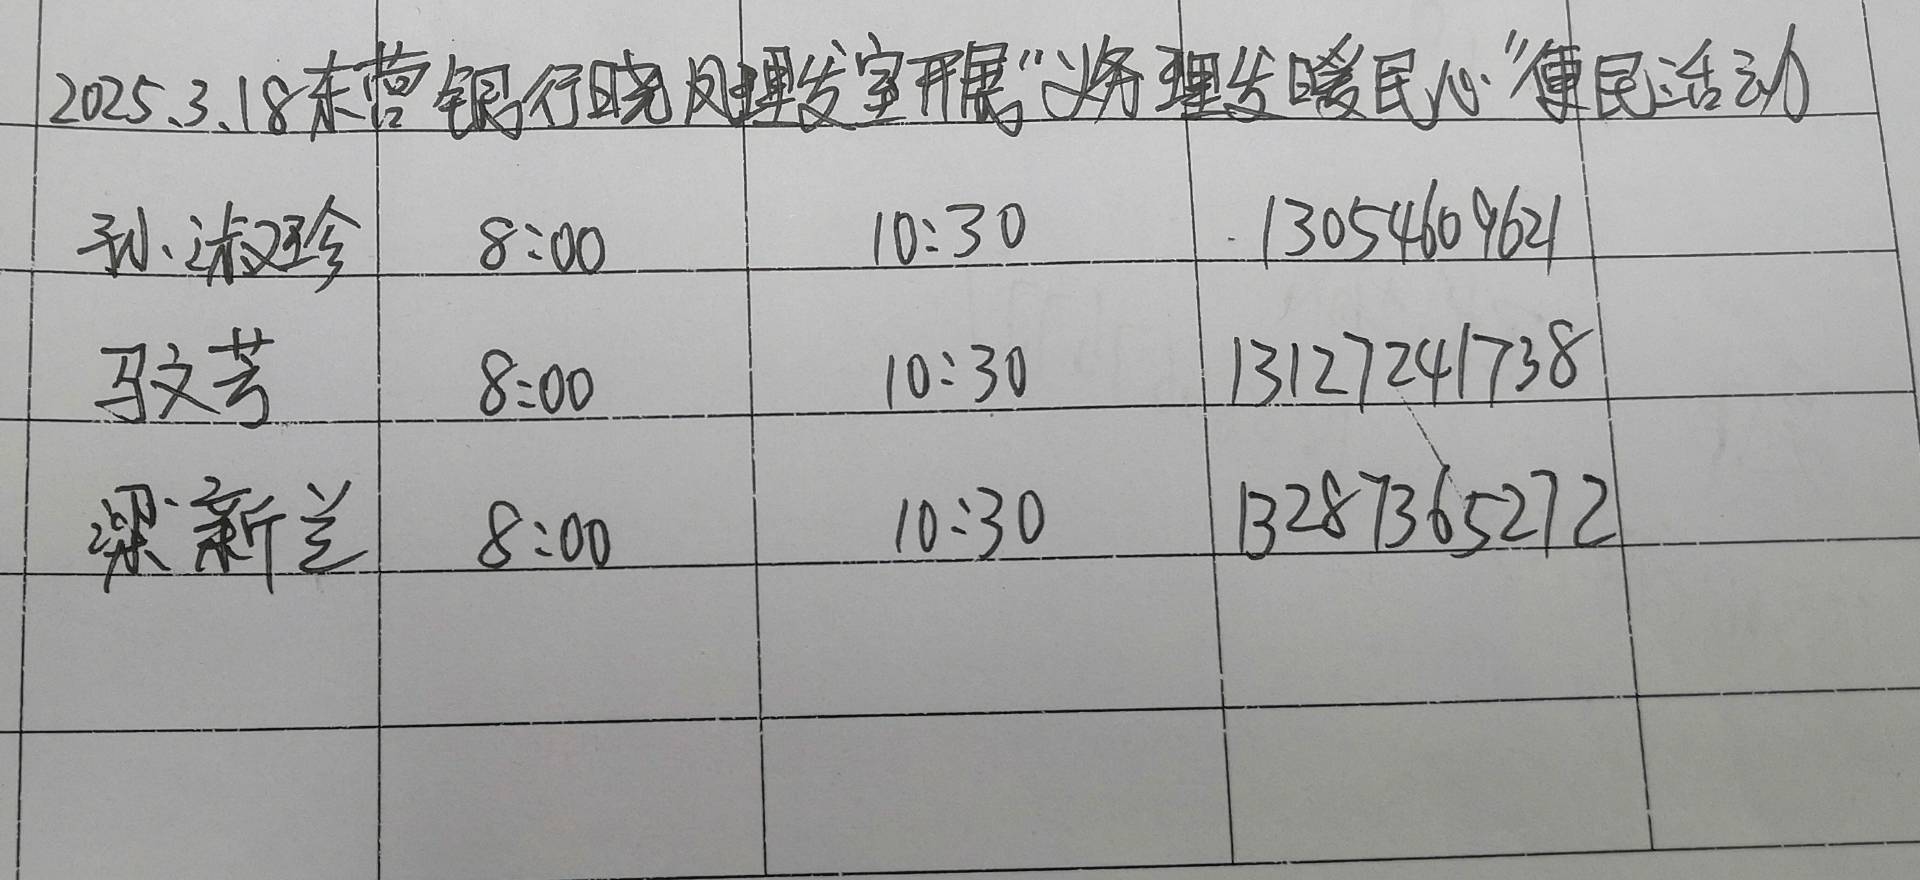 2025.3.18东营银行晓风理发室开展“义务理发暖民心”便民活动
孙淑珍 8:00 10:30 13054609621
马文芳 8:00 10:30 13127241738
梁新兰 8:00 10:30 13287365272